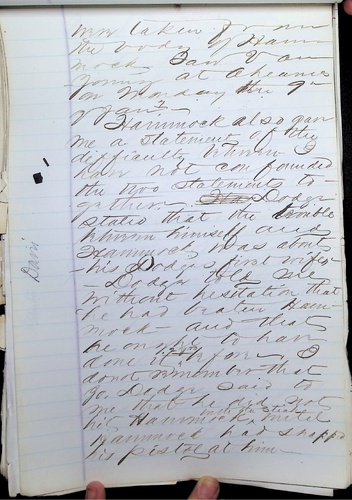 was taken from
the body of Ham-
mock. Saw Van
Young at Cheanee
on Monday the 9th
of Jany
Hammock also gave
me a statement of the
difficulty which I
have not confounded
the two statements to-
gether. Dodge
stated that the trouble
between himself and
Hammock was about
his Dodges first wife-
- Dodge told me
without hesitation that
he had beaten Ham-
mock - and that
he ought to have
done it before, I
do not remember that
Jo. Dodge said to
me that he did not
hit Hammock until
Hammock had snapped
his pistol at him -
Davis